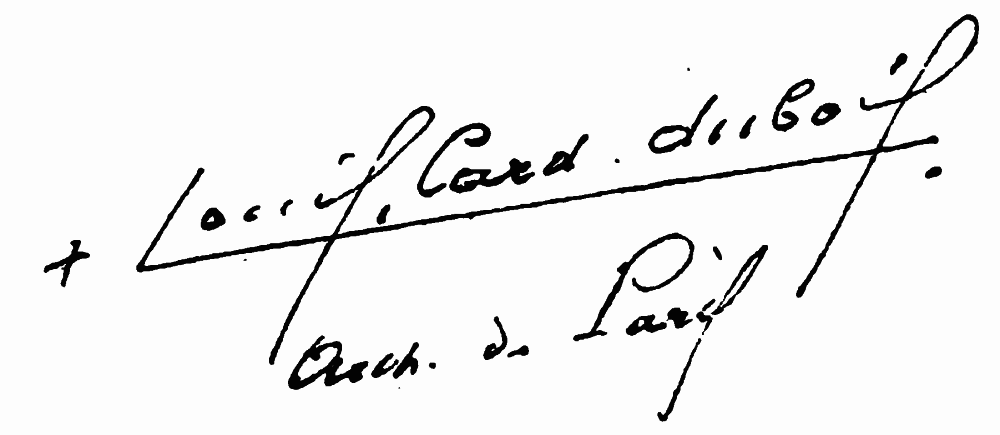 + Louis, Card. dubois.
Arch. de Paris